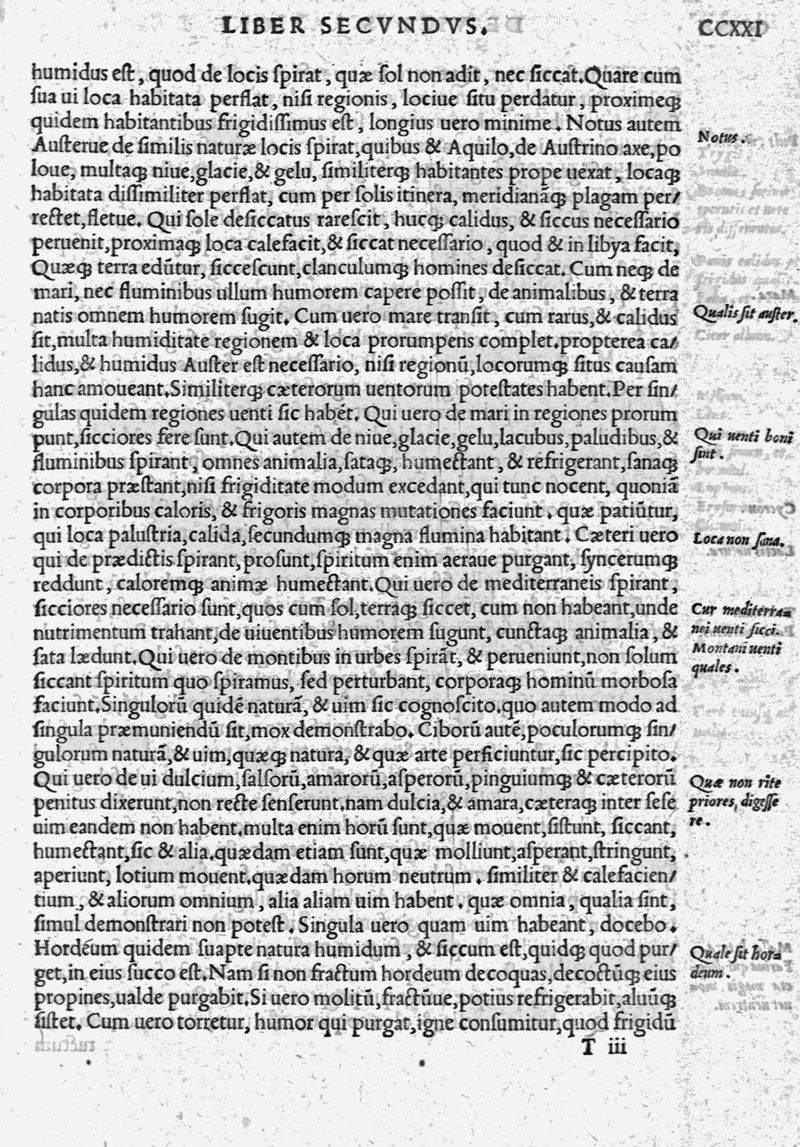 LIBER SECVNDVS. CCXXI
humidus est, quod de locis spirat, quæ sol non adit, nec siccat. Quare cum
sua ui loca habitata perflat, nisi regionis, lociue situ perdatur, proximeqꝫ
quidem habitantibus frigidissimus est, longius uero minime. Notus autem
Notus.
Austerue de similis naturæ locis spirat, quibus & Aquilo, de Austrino axe, po
loue, multaqꝫ niue, glacie, & gelu, similiterqꝫ habitantes prope uexat, locaqꝫ
habitata dissimiliter perflat, cum per solis itinera, meridianãqꝫ plagam per/
rectet, fletue. Qui sole desiccatus rarescit, hucqꝫ calidus, & siccus necessario
peruenit, proximaqꝫ loca calefacit, & siccat necessario, quod & in libya facit,
Quæqꝫ terra edũtur, siccescunt, clanculumqꝫ homines desiccat. Cum neqꝫ de
mari, nec fluminibus ullum humorem capere possit, de animalibus, & terra
natis omnem humorem sugit. Cum uero mare transit, cum rarus, & calidus
Qualis sit auster.
sit, multa humiditate regionem & loca prorumpens complet. propterea ca/
lidus, & humidus Auster est necessario, nisi regionũ, locorumqꝫ situs causam
hanc amoueant. Similiterqꝫ cæterorum uentorum potestates habent. Per sin/
gulas quidem regiones uenti sic habẽt. Qui uero de mari in regiones prorum
punt, sicciores fere sunt. Qui autem de niue, glacie, gelu, lacubus, paludibus, &
Qui uenti boni
sint.
fluminibus spirant, omnes animalia, sataqꝫ, humectant, & refrigerant, sanaqꝫ
corpora præstant, nisi frigiditate modum excedant, qui tunc nocent, quoniã
in corporibus caloris, & frigoris magnas mutationes faciunt. quæ patiũtur,
qui loca palustria, calida, secundumqꝫ magna flumina habitant. Cæteri uero
Loca non sana.
qui de prædictis spirant, prosunt, spiritum enim aeraue purgant, syncerumqꝫ
reddunt, caloremqꝫ animæ humectant. Qui uero de mediterraneis spirant,
sicciores necessario sunt, quos cum sol, terraqꝫ siccet, cum non habeant, unde
Cur mediterra=
nei uenti sicci.
nutrimentum trahant, de uiuentibus humorem sugunt, cunctaqꝫ animalia, &
sata lædunt. Qui uero de montibus in urbes spirãt, & perueniunt, non solum
Montani uenti
quales.
siccant spiritum quo spiramus, sed perturbant, corporaqꝫ hominũ morbosa
faciunt. Singulorũ quidẽ naturã, & uim sic cognoscito. quo autem modo ad
singula præmuniendũ sit, mox demonstrabo. Ciborũ autẽ, poculorumqꝫ sin/
gulorum naturã, & uim, quæqꝫ natura, & quæ arte perficiuntur, sic percipito.
Qui uero de ui dulcium, salsorũ, amarorũ, asperorũ, pinguiumqꝫ & cæterorũ
Quæ non rite
priores, digesse
re.
penitus dixerunt, non recte senserunt. nam dulcia, & amara, cæteraqꝫ inter sese
uim eandem non habent. multa enim horũ sunt, quæ mouent, sistunt, siccant,
humectant, sic & alia. quædam etiam sunt, quæ molliunt, asperant, stringunt,
aperiunt, lotium mouent. quædam horum neutrum. similiter & calefacien/
tium, & aliorum omnium, alia aliam uim habent. quæ omnia, qualia sint,
simul demonstrari non potest. Singula uero quam uim habeant, docebo.
Hordéum quidem suapte natura humidum, & siccum est, quidqꝫ quod pur/
Quale sit hor=
deum.
get, in eius succo est. Nam si non fractum hordeum decoquas, decoctũqꝫ eius
propines, ualde purgabit. Si uero molitũ, fractũue, potius refrigerabit, aluũqꝫ
sistet. Cum uero torretur, humor qui purgat, igne consumitur, quod frigidũ
T iii